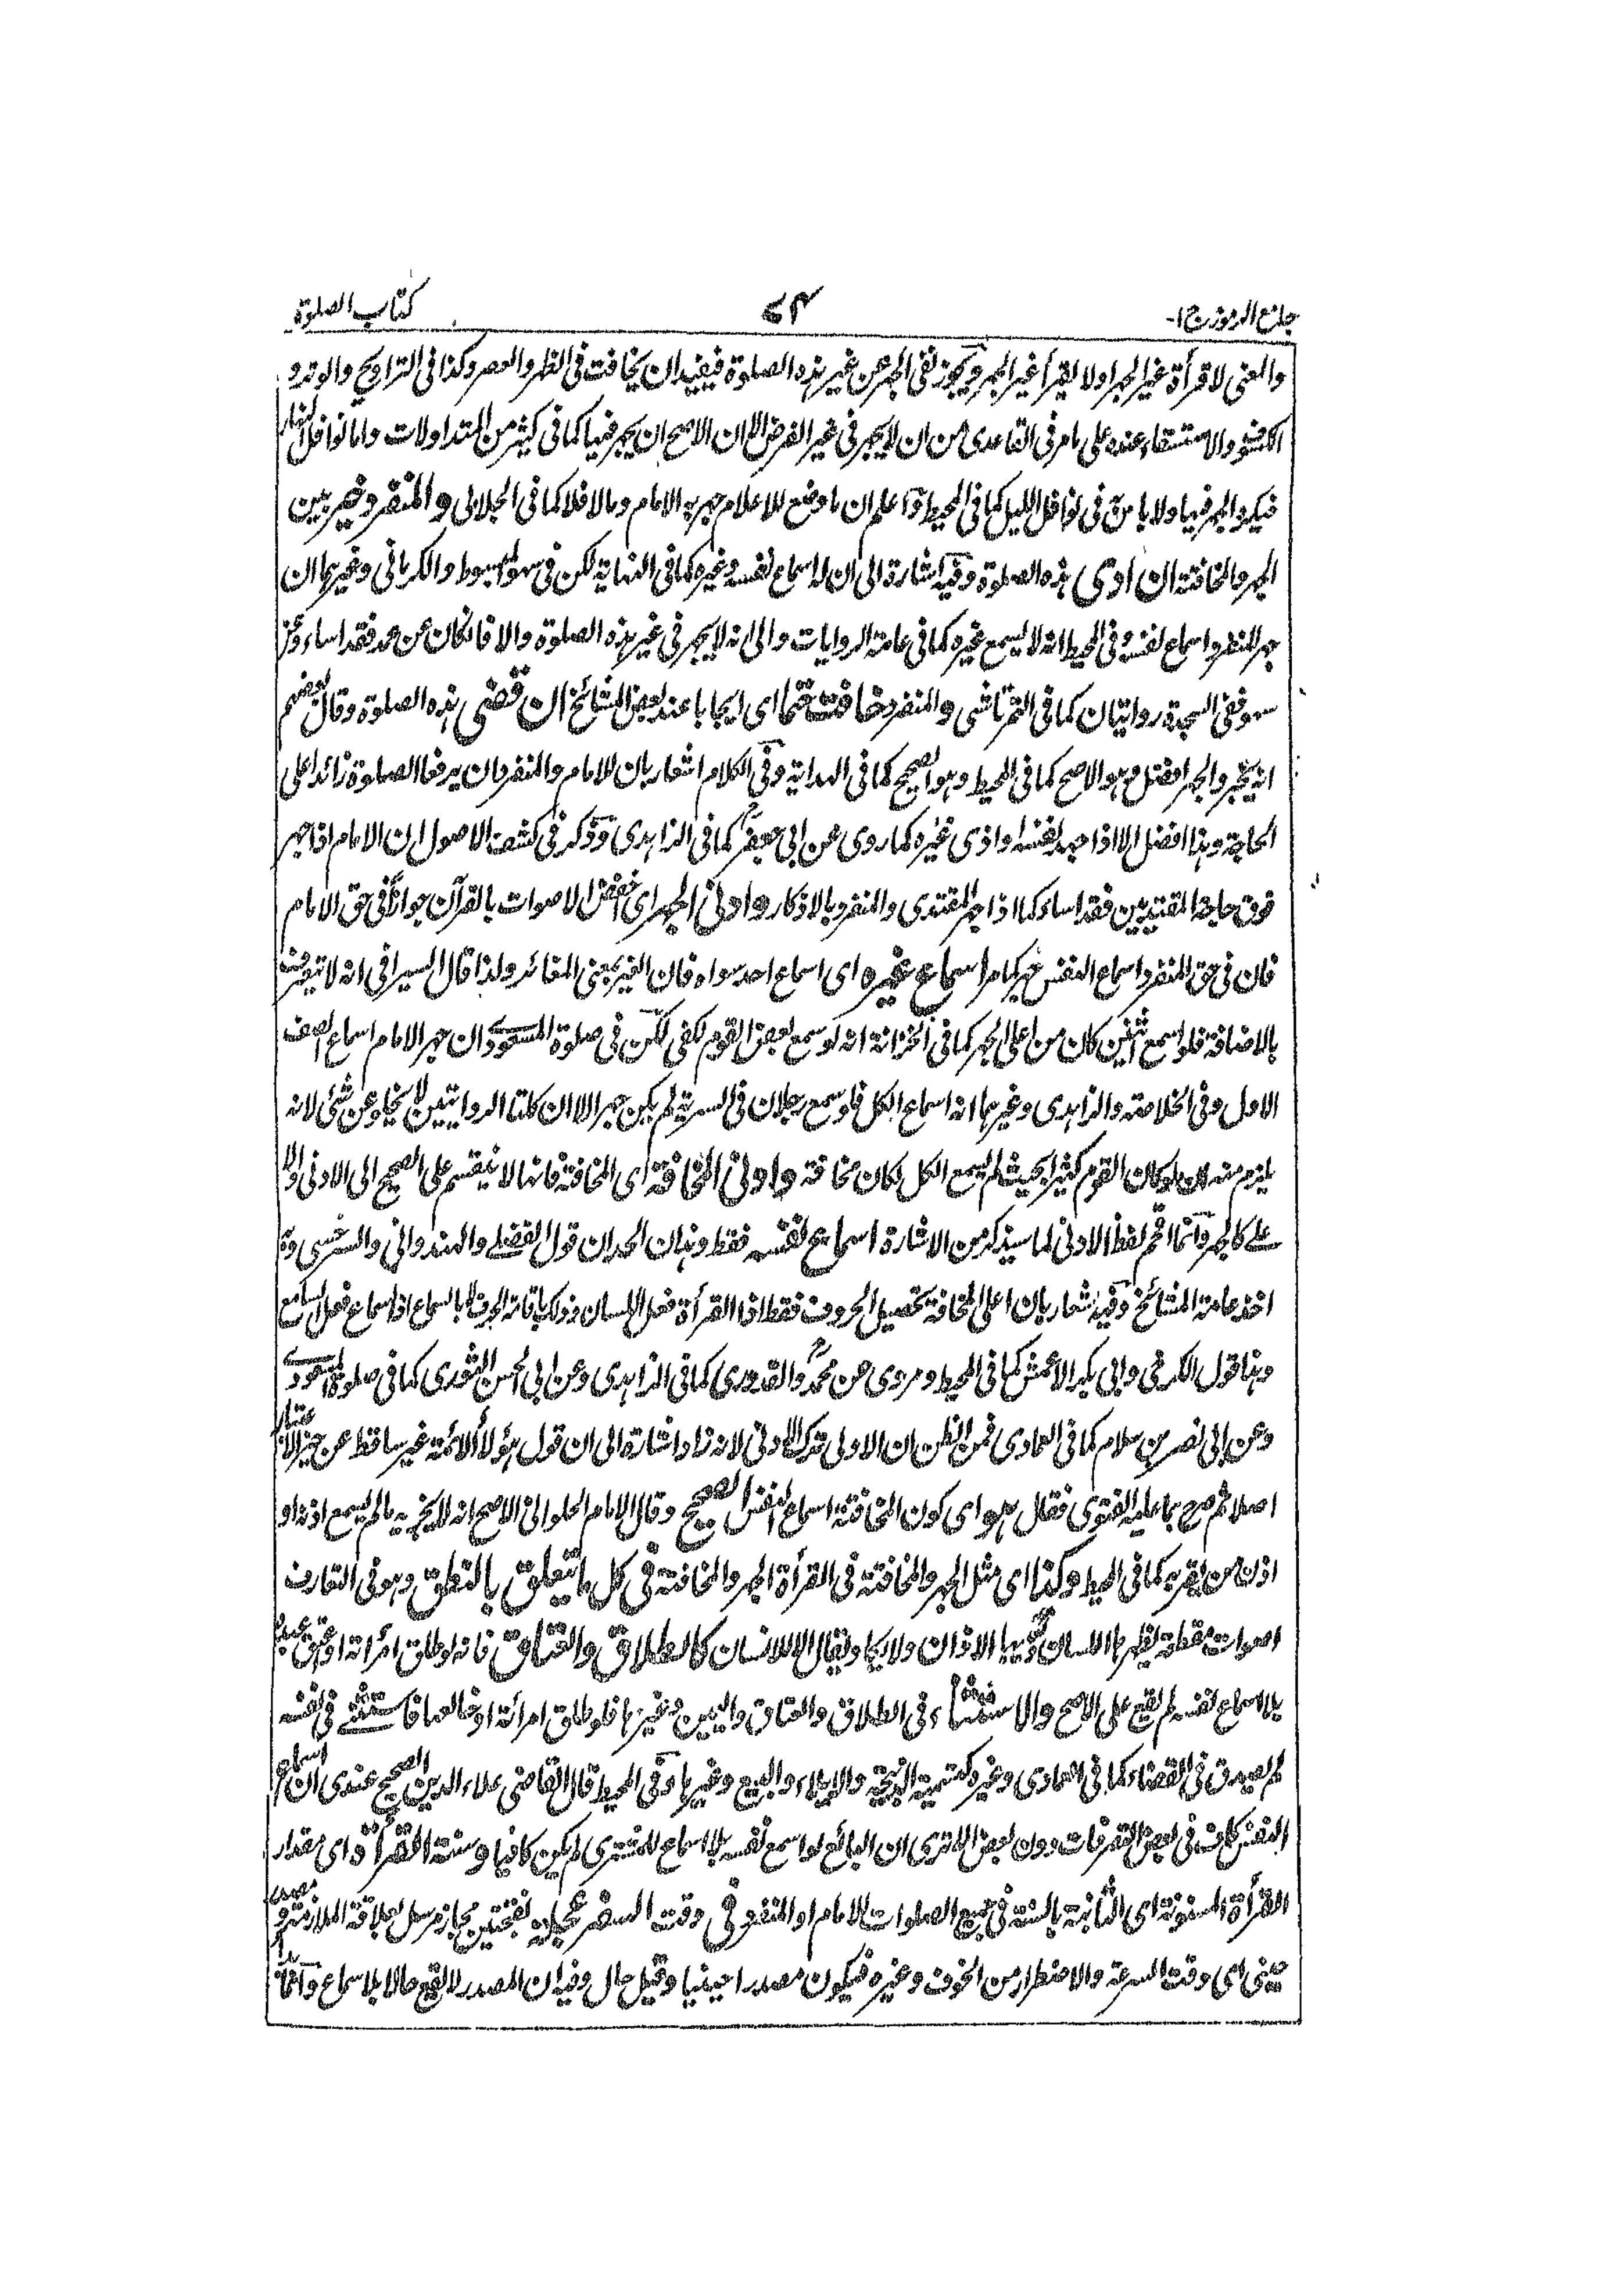 جامع الرموز ج ١-
٧٤
كتاب الصلوة
والمعنى لا قرأة غير الجهر اولا يقرأ غير الجهر ويجوز نفى الجهر عن غير هذه الصلوة فيفيد ان يخافت فى الظهر والعصر وكذا فى التراويح والوتر و
الكسوف والاستسقاء عنده على ما مر فى القاعدى من ان لا يجهر فى غير الفرض الا ان الاصح ان يجهر فيها كما فى كثير من المتداولات واما نوافل النهار
فيكره الجهر فيها ولا باس فى نوافل الليل كما فى المحيط واعلم ان ما وضع للاعلام جهر به الامام وما لا فلا كما فى الجلابى والمنفرد خير بين
الجهر والمخافتة ان ادى هذه الصلوة وفيه اشارة الى ان له اسماع نفسه وغيره كما فى النهاية لكن فى سهو المبسوط والكرمانى وغيرهما ان
جهر المنفرد اسماع نفسه وفى المحيط انه لا يسمع غيره كما فى عامة الروايات والى انه لا يجهر فى غير هذه الصلوة والا فان كان عن عمد فقد اساء وعن
سهو ففى السجدة روايتان كما فى التمرتاشى والمنفرد خافت حتما اى ايجابا عند بعض المشائخ ان قضى هذه الصلوة وقال بعضهم
انه يخير والجهر افضل وهو الاصح كما فى المحيط وهو الصحيح كما فى الهداية وفى الكلام اشعار بان للامام والمنفرد ان يرفعا الصلوة زائدا على
الحاجة وهذا افضل الا اذا جهد نفسه او اذى غيره كما روى عن ابى جعفر كما فى الزاهدى وذكر فى كشف الاصول ان الامام اذا جهر
فوق حاجة المقتديين فقد اساء كما اذا جهر المقتدى والمنفرد بالاذكار وادنى الجهر اى اخفض الاصوات بالقرآن جوازا فى حق الامام
فان فى حق المنفرد اسماع النفس جهر كما مر اسماع غيره اى اسماع احد سواه فان الغير بمعنى المغائر ولذا قال السيرافى انه لا يتعرف
بالاضافة فلو اسمع اثنين كان من اعلى الجهر كما فى الخزانة انه لو سمع بعض القوم لكفى لكن فى صلوة المسعودى ان جهر الامام اسماع الصف
الاول وفى الخلاصة والزاهدى وغيرهما انه اسماع الكل فلو سمع رجلان فى السرية لم يكن جهرا الا ان كلتا الروايتين لا يخلو عن شئ لانه
يلزم منه ان لو كان القوم كثيرا بحيث لم يسمع الكل لكان مخافتة وادنى المخافتة اى المخافتة فانها لا ينقسم على الصحيح الى الادنى والا
على كالجهر وانما اقحم لفظ الادنى لما سيذكر من الاشارة اسماع نفسه فقط وهذان الحدان قول الفضلى والهندوانى والسرخسى وبه
اخذ عامة المشائخ وفيه اشعار بان اعلى المخافتة تحصيل الحروف فقط اذ القرأة فعل اللسان وذلك باقامة الحروف لا بالسماع اذ اسماع فعل السامع
وهذا قول الكرخى وابى بكر الاعمش كما فى المحيط ومروى عن محمد والقدورى كما فى الزاهدى وعن ابى الحسن الثورى كما فى صلوة المسعودى
وعن ابى نصر بن سلام كما فى العمادى فمن الظن ان الاولى ترك الادنى لانه زاد اشارة الى ان قول هؤلاء الائمة غير ساقط عن حيز الاعتبار
اصلا ثم صرح بما عليه الفتوى فقال هو اى كون المخافتة اسماع النفس الصحيح وقال الامام الحلوانى الاصح انه لا يجزيه ما لم يسمع اذناه او
اذن من بقربه كما فى المحيط وكذا اى مثل الجهر والمخافتة فى القرأة الجهر والمخافتة فى كل ما يتعلق بالنطق وهو فى التعارف
اصوات مقطعة يظهرها اللسان وتعيها الاذان ولا يكاد يقال الا للانسان كالطلاق والعتاق فانه لو طلق امرأته او اعتق عبده
بلا اسماع نفسه لم يقع على الاصح والاستثناء فى الطلاق والعتاق واليمين وغيرها فلو طلق امرأته او خالعها فاستثنى فى نفسه
لم يصدق فى القضاء كما فى العمادى وغيره كتسمية الذبيحة والايلاء والبيع وغيرها وفى المحيط قال القاضى علاء الدين الصحيح عندى ان اسماع
النفس كاف فى بعض التصرفات دون بعض الا ترى ان البائع لو اسمع نفسه بلا اسماع المشترى لم يكن كافيا وسنة القرأة اى مقدار
القرأة المسنونة اى الثابتة بالسنة فى جميع الصلوات للامام او المنفرد فى وقت السفر عجلة بفتحتين مجاز مرسل بعلاقة الملازمة و
يعنى اى وقت السرعة والاضطرار من الخوف وغيره فيكون مصدرا حينيا وقيل حال وفيه ان المصدر لا يقع حالا بلا سماع وانما